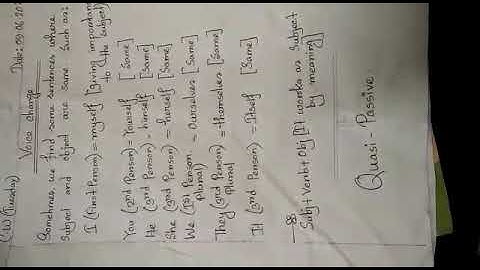 (W) (Tuesday) Date: 09.06.202
Voice change
Sometimes, we find some sentences where
subject and object are same. Such as:
I (First Person) = myself [giving importance to the subject]
You (2nd Person) = Yourself [Same]
He (3rd Person) = himself [Same]
She (3rd Person) = herself [Same]
We (1st Person plural) = Ourselves [Same]
They (3rd Person plural) = themselves [Same]
It (3rd Person) = Itself [Same]
Sub + Verb + Obj [It works as subject by meaning]
Quasi - Passive